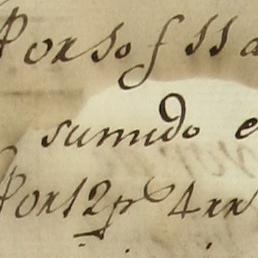 Por so f ss a
sumido e
Por 12 p 4 rr